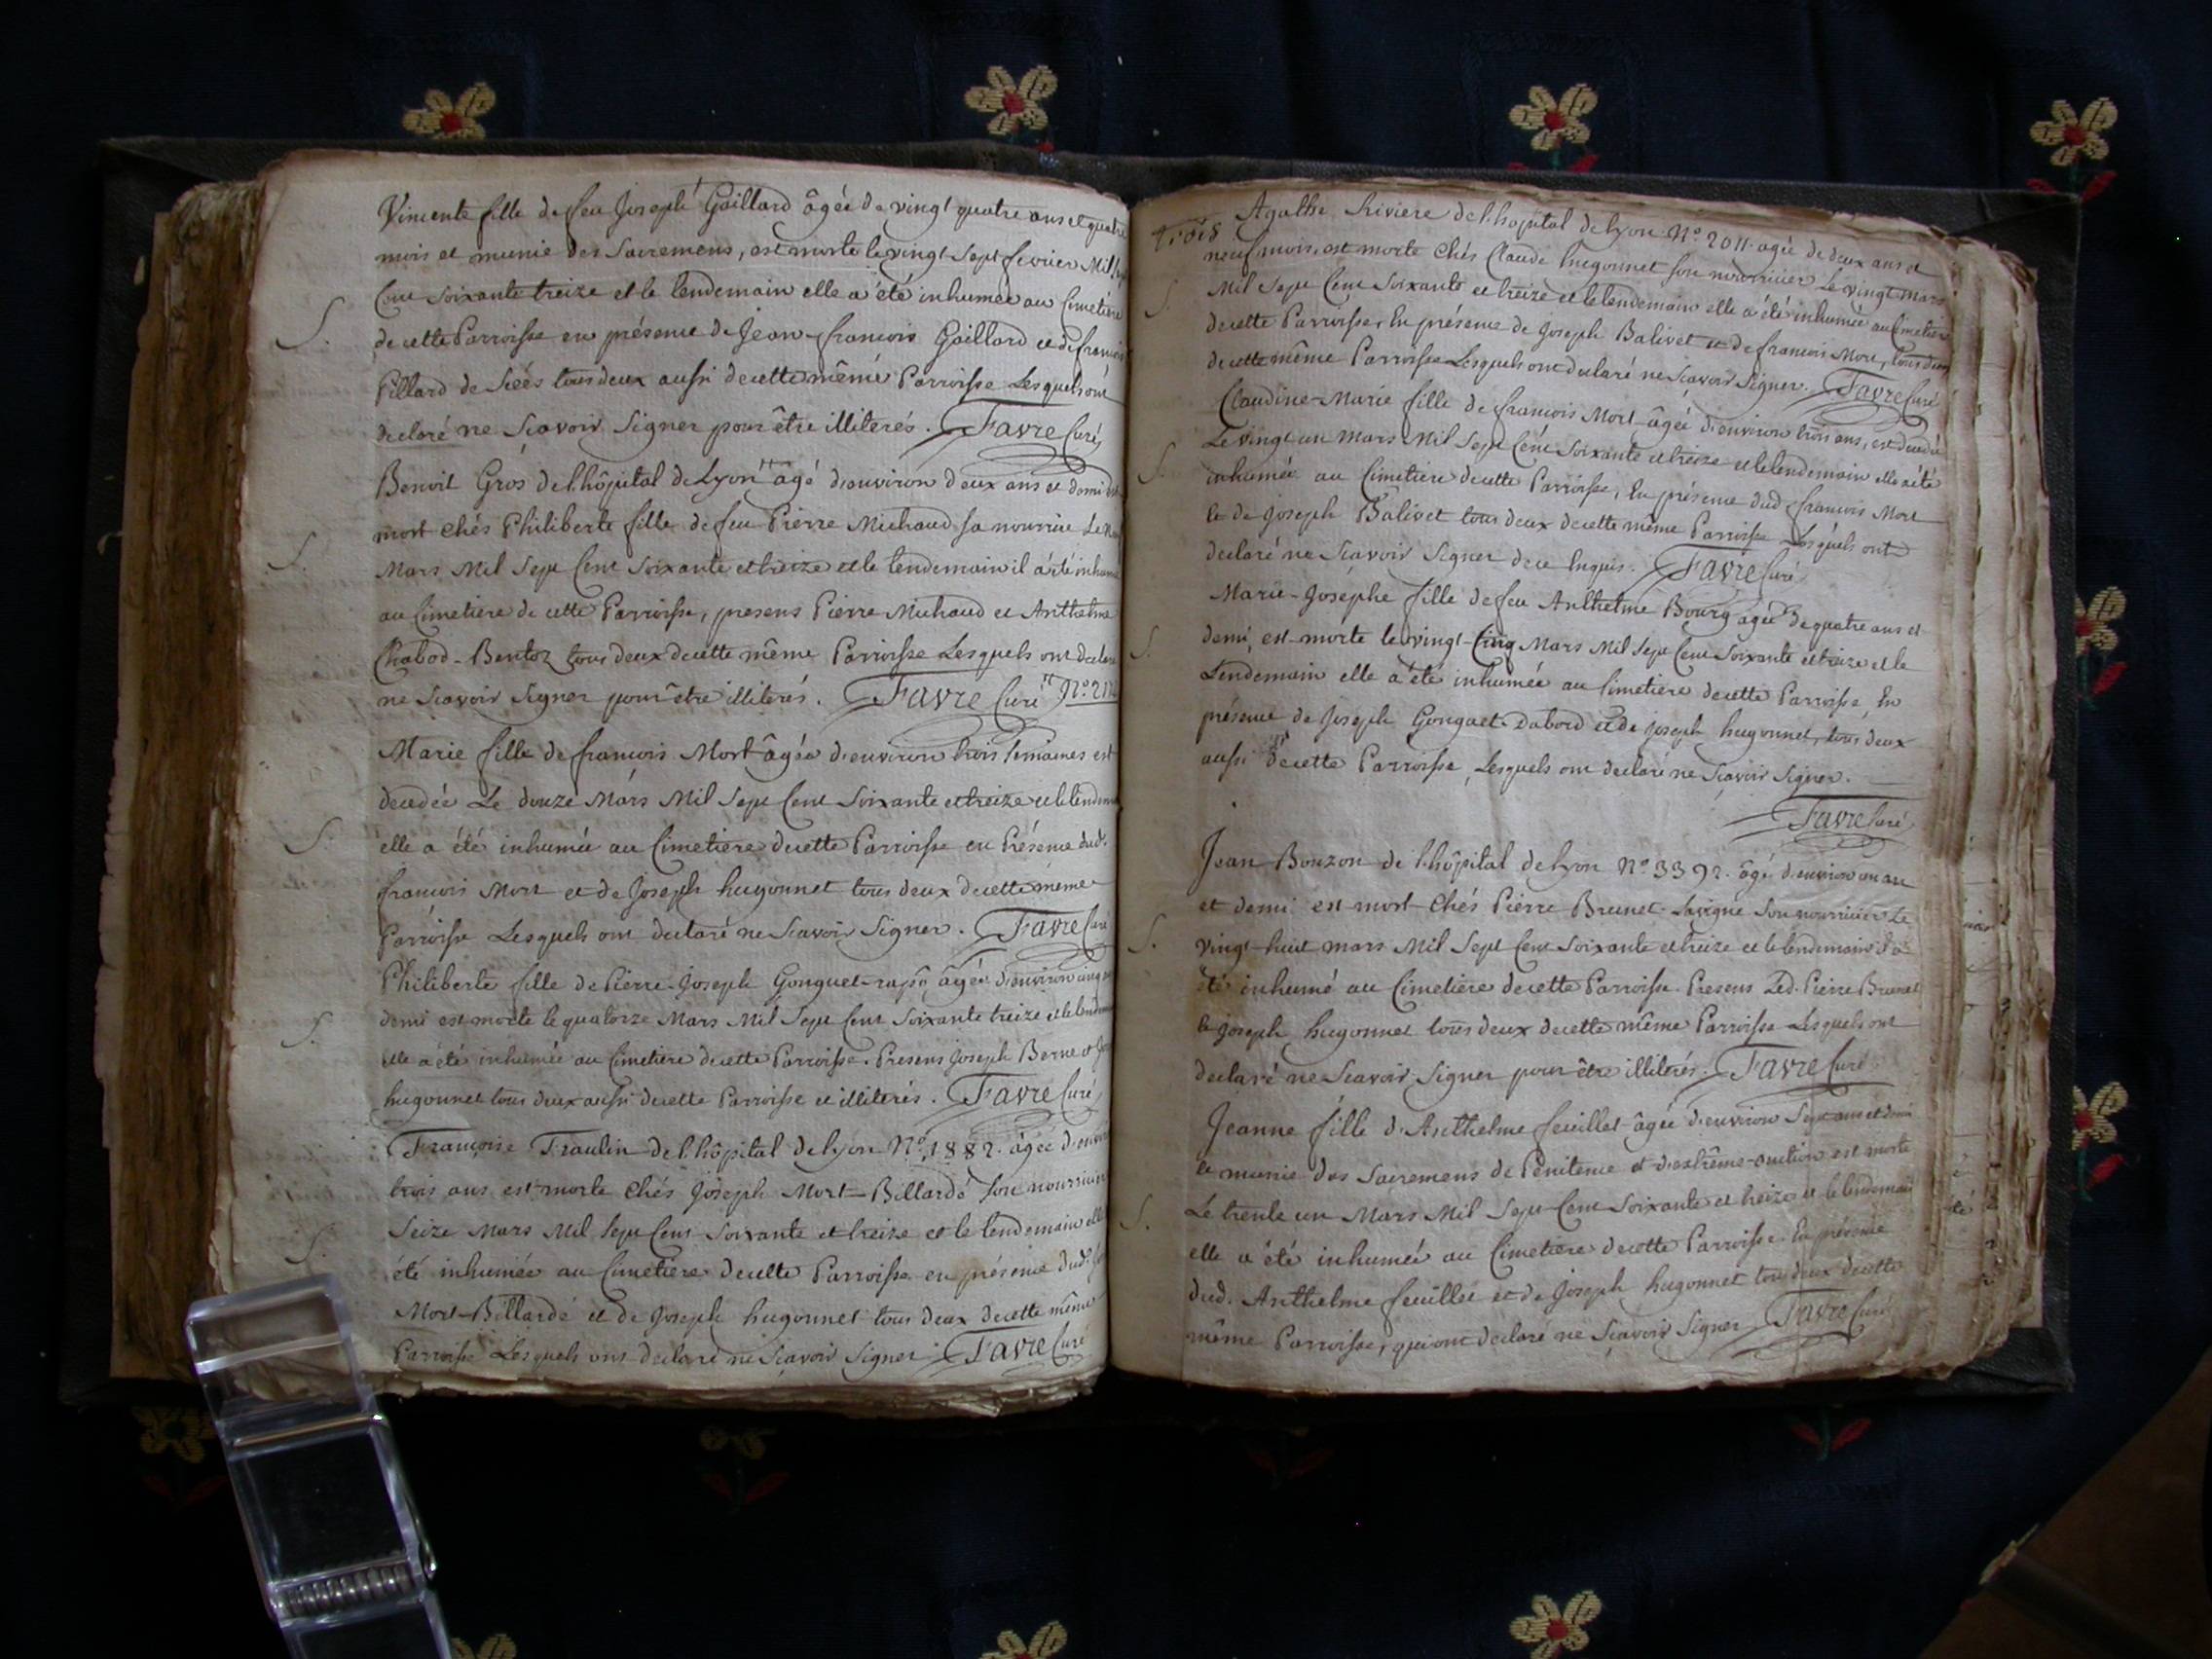 Vincente fille de feu Joseph Gaillard âgée de vingt quatre ans et quatre
mois et munie des Sacremens, est morte le vingt Sept fevrier Mil Sept
Cent Soixante treize et le lendemain elle a été inhumée au Cimetière
de cette Parroisse en présence de Jean-francois Gaillard et de francois
Pillard de Scées tous deux aussi de cette même Parroisse Lesquels ont
declaré ne Scavoir Signer pour être illiterés. Favre Curé
Benoit Gros de l'hôpital de Lyon âgé d'environ deux ans et demi est
mort chés Philiberte fille de feu Pierre Michaud sa nourrice Le
Mars Mil Sept Cent Soixante et treize et le lendemain il a été inhumé
au Cimetiere de cette Parroisse, presens Pierre Michaud et Anthelme
Chabod-Bentoz tous deux de cette même Parroisse Lesquels ont declaré
ne Scavoir Signer pour être illiterés. Favre Curé
Marie fille de francois Mort âgée d'environ trois semaines est
decedée Le douze Mars Mil Sept Cent Soixante et treize et le lendemain
elle a été inhumée au Cimetiere de cette Parroisse en Présence dud.
francois Mort et de Joseph hugonnet tous deux de cette même
Parroisse Lesquels ont declaré ne Scavoir Signer. Favre Curé
Philiberte fille de Pierre-Joseph Gonguet-rapô âgée d'environ cinq ans
demi est morte le quatorze Mars Mil Sept Cent Soixante treize et le lendemain
elle a été inhumée au Cimetiere de cette Parroisse. Presens Joseph Berne et
hugonnet tous deux aussi de cette Parroisse et illiterés. Favre Curé
Françoise Fraulin de l'hôpital de lyon N.º 1882. âgée d'environ
trois ans est morte Chés Joseph Mort-Billardé son nourricier
Seize Mars Mil Sept Cent Soixante et treize et le lendemain elle
été inhumée au Cimetiere de cette Parroisse en présence dud.
Mort-Billardé et de Joseph hugonnet tous deux de cette même
Parroisse Lesquels ont declaré ne Scavoir Signer. Favre Curé
trois
Agathe Riviere de l'hopital de lyon N.º 2011. agée de deux ans et
neuf mois, est morte Chés Claude hugonnet son nourricier Le vingt Mars
Mil Sept Cent Soixante et treize et le lendemain elle a été inhumée au Cimetiere
de cette Parroisse, En présence de Joseph Balivet et de francois Mort, tous deux
de cette même Parroisse Lesquels ont declaré ne Scavoir Signer. Favre Curé
Claudine-Marie fille de francois Mort âgée d'environ trois ans, est decedée
Le vingt un Mars Mil Sept Cent Soixante et treize et le lendemain elle a été
inhumée au Cimetiere de cette Parroisse, En présence dud. francois Mort
et de Joseph Balivet tous deux de cette même Parroisse Lesquels ont
declaré ne Scavoir Signer de ce Enquis. Favre Curé
Marie-Josephe fille de feu Anthelme Bourg agée de quatre ans et
demi, est morte le vingt-Cinq Mars Mil Sept Cent Soixante et treize et le
Lendemain elle a été inhumée au Cimetiere de cette Parroisse, En
présence de Joseph Gonguet-Dabord et de Joseph hugonnet, tous deux
aussi de cette Parroisse, Lesquels ont declaré ne Scavoir Signer.
Favre Curé
Jean Bouzon de l'hôpital de Lyon N.º 3392. âgé d'environ un an
et demi est mort Chés Pierre Brunet-Lavigne Son nourricier Le
vingt-huit mars Mil Sept Cent Soixante et treize et le lendemain il a
été inhumé au Cimetière de cette Parroisse. Presens Led. Pierre Brunet
et Joseph hugonnet tous deux de cette même Parroisse Lesquels ont
declaré ne Scavoir Signer pour être illiterés. Favre Curé
Jeanne fille d'Anthelme feuillet âgée d'environ Sept ans et demi
et munie des Sacremens de Pénitence et d'extrême-onction est morte
Le trente un Mars Mil Sept Cent Soixante et treize et le lendemain
elle a été inhumée au Cimetiere de cette Parroisse. En présence
dud. Anthelme feuillet et de Joseph hugonnet tous deux de cette
même Parroisse, qui ont declaré ne Scavoir Signer. Favre Curé